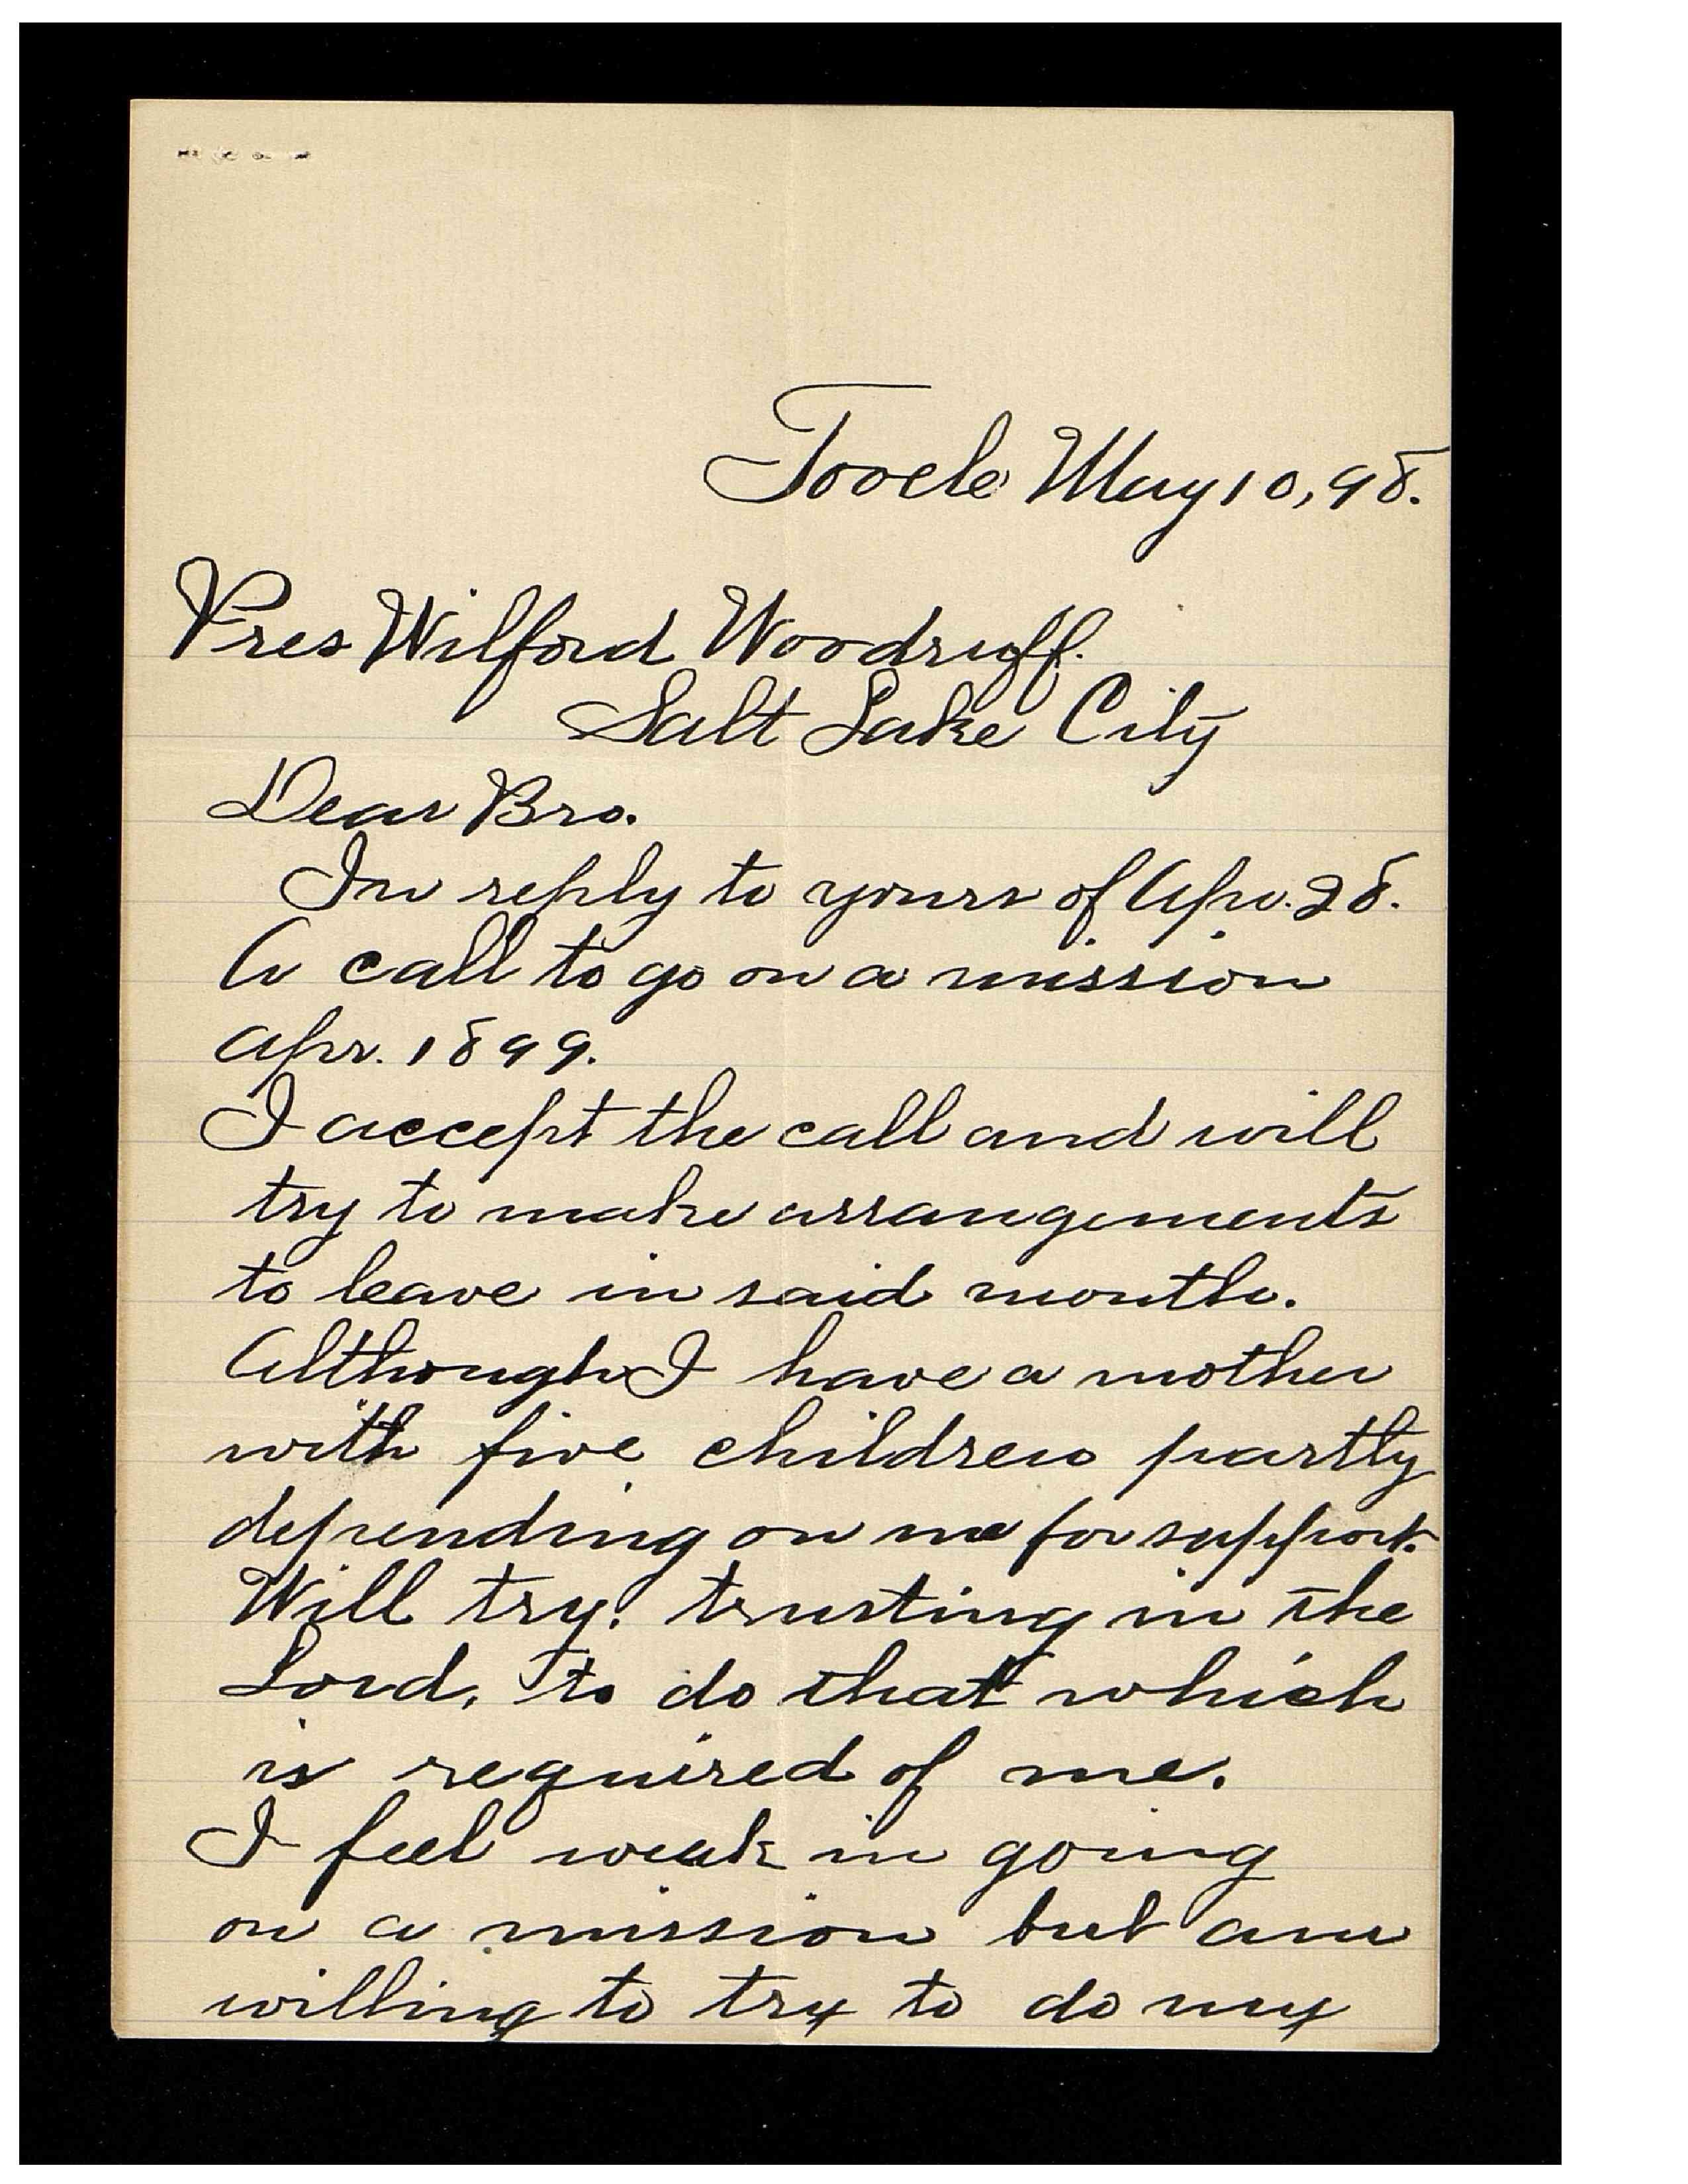 Tooele May 10, 98.
Pres Wilford Woodruff.
Salt Lake City
Dear Bro.
In reply to yours of Apr. 28.
A call to go on a mission
Apr. 1899.
I accept the call and will
try to make arrangements
to leave in said month.
Although I have a mother
with five children partly
depending on me for support.
Will try, trusting in the
Lord, to do that which
is required of me.
I feel weak in going
on a mission but am
willing to try to do my